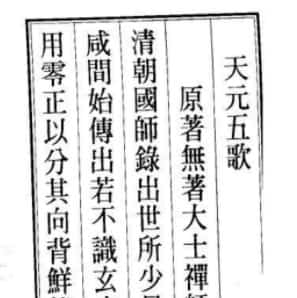 天元五歌
原著無著大士禪師
清朝國師錄出世所少見
咸間始傳出若不識玄
用零正以分其向背鮮